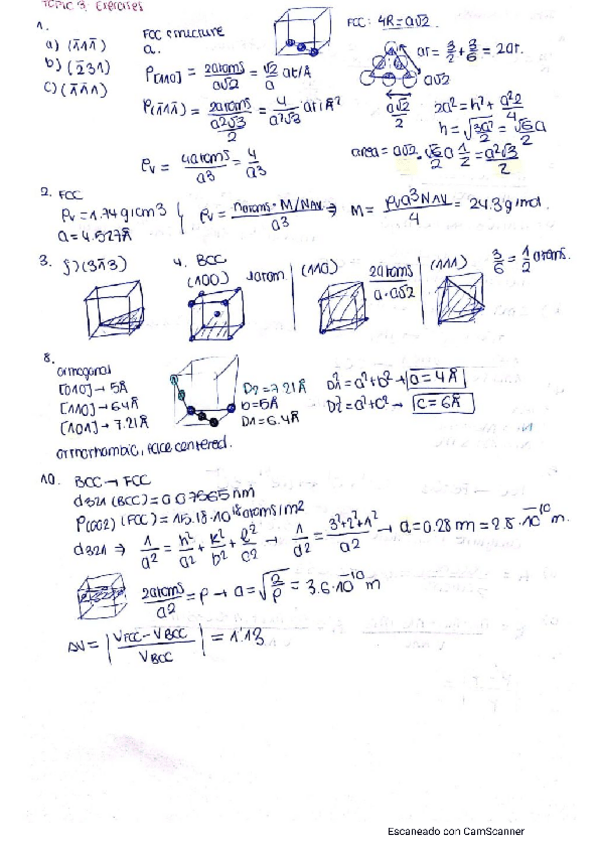 TOPIC 3. Exercises
1.
a) (1̄11̄)
b) (2̄31)
c) (1̄1̄1)
FCC structure
a.
ρ[110] = 2atoms/a√2 = √2/a at/Å
ρ(1̄11̄) = 2atoms/(a²√3/2) = 4/a²√3 at/Å²
ρv = 4atoms/a3 = 4/a3
FCC: 4R=a√2.
at = 3/2 + 3/6 = 2at.
a√2
a√2/2
2a² = h² + a²2/4
h = √(3a²/2) = √6a/2
area = a√2 · √6a/2 · 1/2 = a²√3/2
2. FCC
ρv = 1.74 g/cm3
a = 4.527Å
ρv = natoms·M/NAV / a3 ⇒ M = ρv a³ NAV/4 = 24.3 g/mol.
3. f) (31̄3)
4. BCC
(100) 1atom
(110) 2atoms/a·a√2
(111) 3/6 = 1/2 atoms.
8.
[010] → 5Å
[110] → 6.4Å
[101] → 7.21Å
D2 = 7.21Å
b = 5Å
D1 = 6.4Å
D1² = a² + b² → a = 4Å
D2² = a² + c² → c = 6Å
orthorhombic, face centered.
10. BCC → FCC
d321 (BCC) = 0.07565 nm
ρ(002) (FCC) = 15.18·10¹⁸ atoms/m2
d321 ⇒ 1/d2 = h²/a2 + k²/b2 + l²/c2 → 1/d2 = 3²+2²+1²/a2 → a = 0.28 m = 2.8·10⁻¹⁰ m.
2atoms/a2 = ρ → a = √(2/ρ) = 3.6·10⁻¹⁰ m
ΔV = |VFCC − VBCC / VBCC| = 1'13
Escaneado con CamScanner